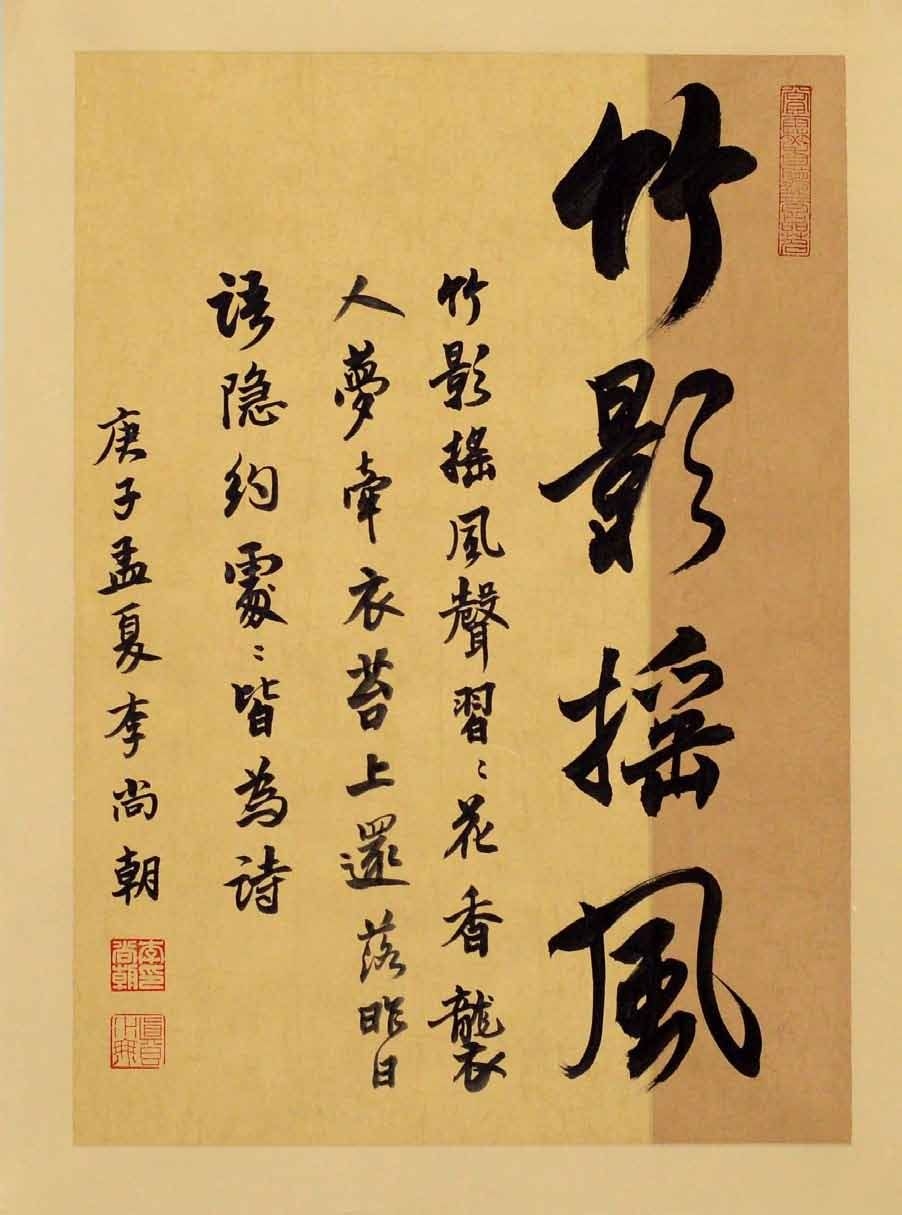 竹影摇風
竹影摇風聲習〻花香襲
人夢牽衣苔上還落昨日
语隐约處〻皆為詩
庚子孟夏李尚朝
李尚朝印